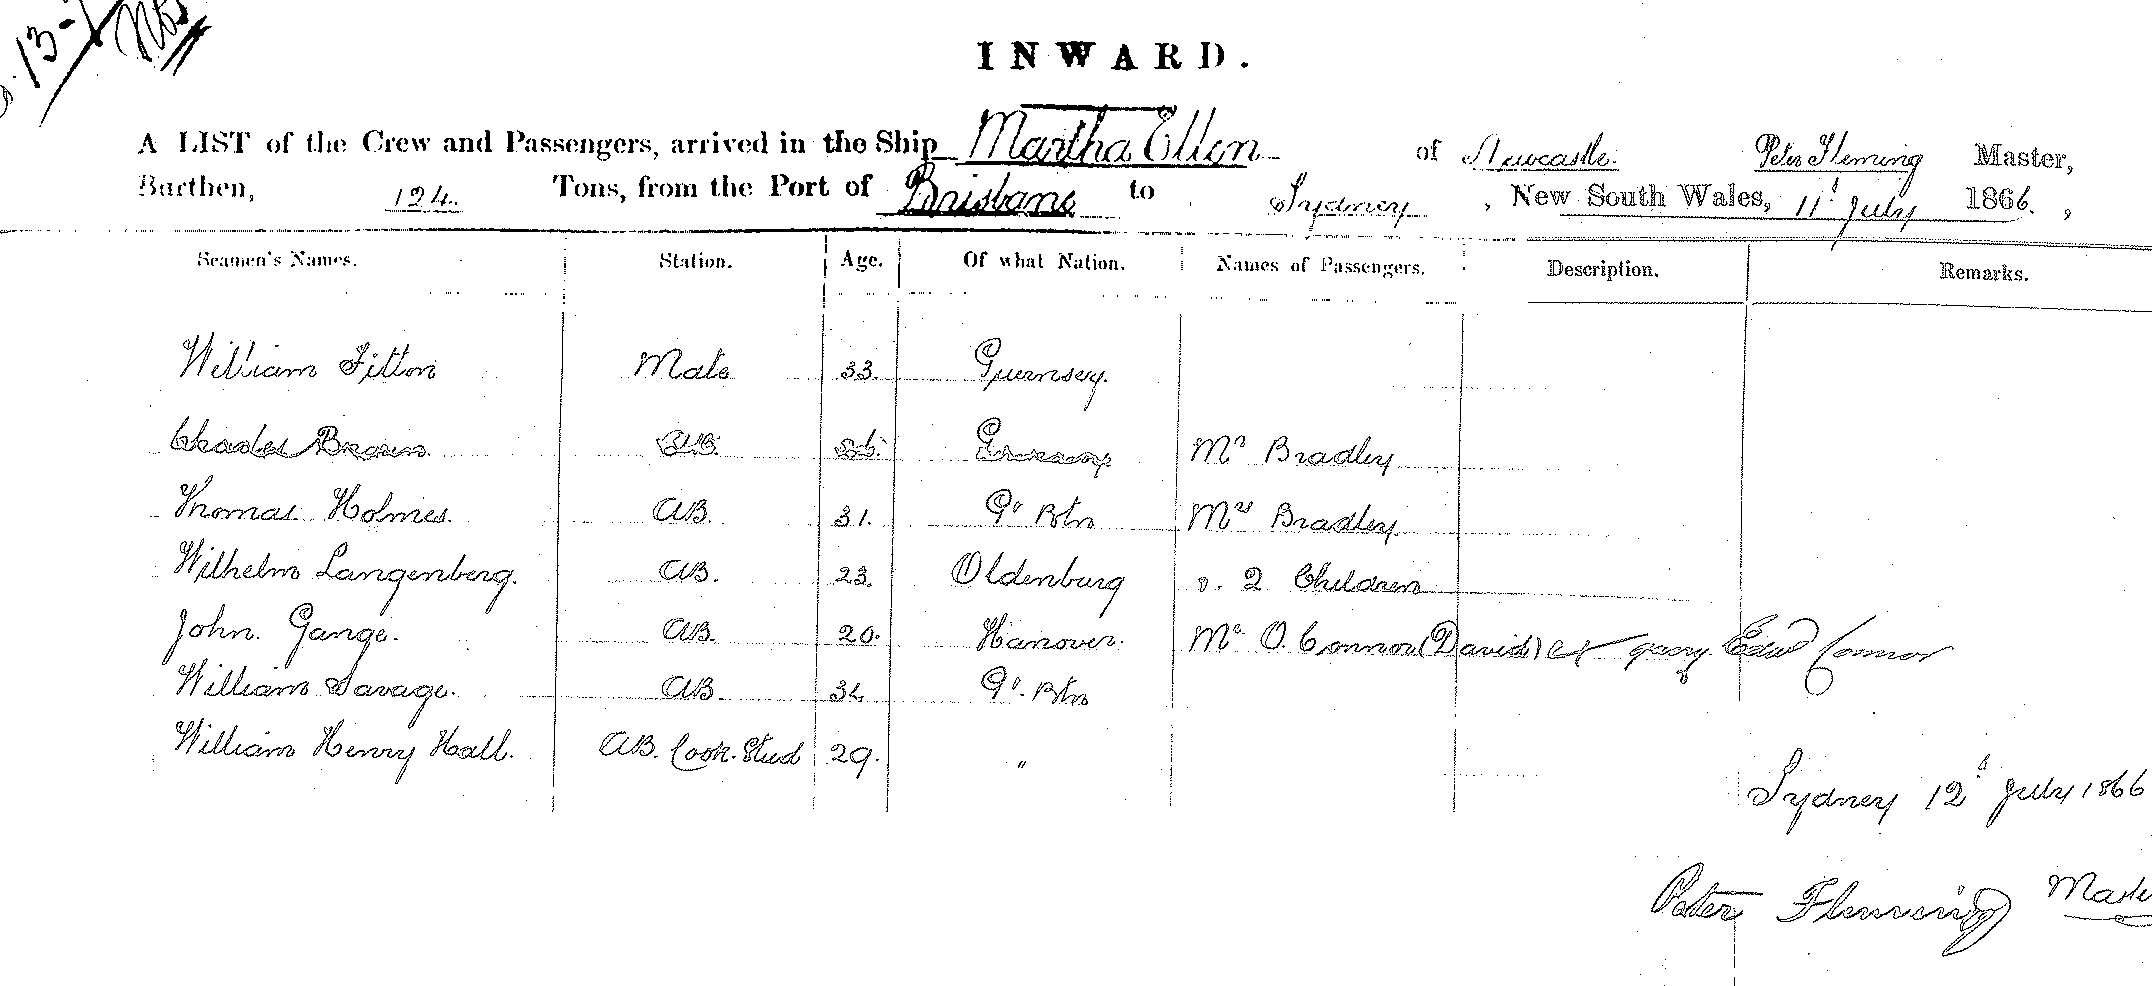 13
INWARD.
A LIST of the Crew and Passengers, arrived in the Ship Martha Ellen of Newcastle. Peter Fleming Master,
Burthen, 124 Tons, from the Port of Brisbane to Sydney, New South Wales, 11th July 1866,
Seamen's Names. Station. Age. Of what Nation. Names of Passengers. Description. Remarks.
William Fitton Mate 33. Guernsey.
Charles Brown Mr Bradley
Thomas Holmes. AB. 31. Gt Btn Mrs Bradley
Wilhelm Langenberg. AB. 23. Oldenburg 2 Children
John Gange. AB. 20. Hanover. Mr O.Connor (David) Edwd Connor
William Savage. AB. Gt. Btn
William Henry Hall. AB. Cook. Stud 29. "
Sydney 12th July 1866
Peter Fleming